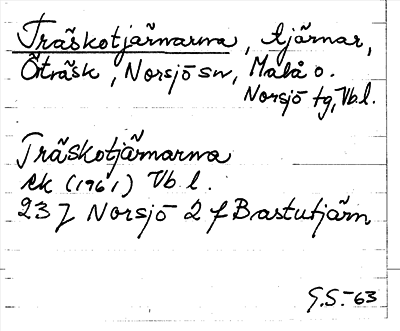 Träskotjärnarna, tjärnar,
Örträsk, Norsjö sn, Malå o.
Norsjö tg, Vb.l.
Träskotjärnarna
ek (1961) Vb l.
23J Norsjö 2 f Bastutjärn
G.S.-63